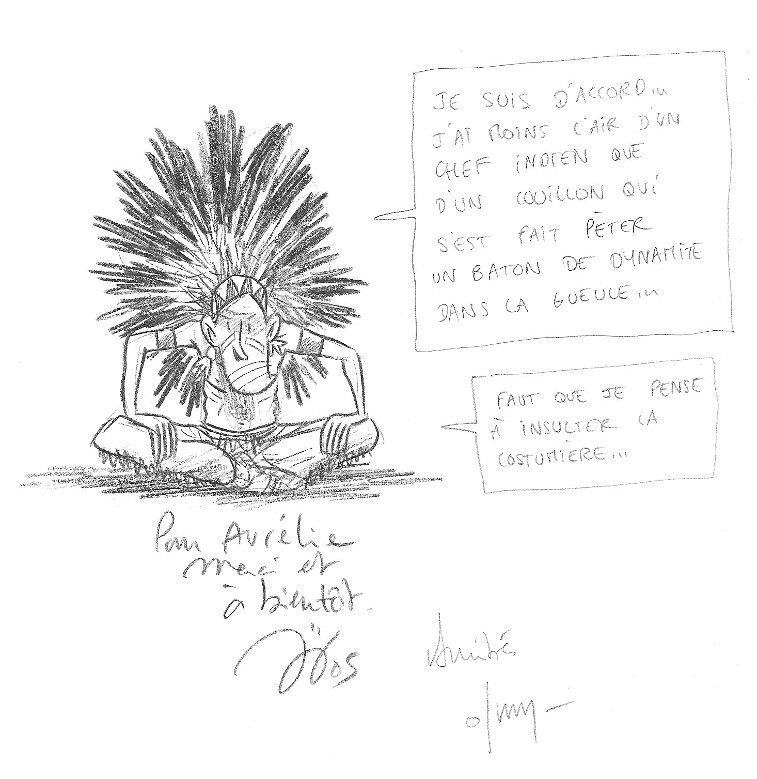 JE SUIS D'ACCORD...
J'AI MOINS L'AIR D'UN
CHEF INDIEN QUE
D'UN COUILLON QUI
S'EST FAIT PÈTER
UN BATON DE DYNAMITE
DANS LA GUEULE...
FAUT QUE JE PENSE
À INSULTER LA
COSTUMIÈRE...
Pour Aurélie
merci et
à bientôt.
Amitiés